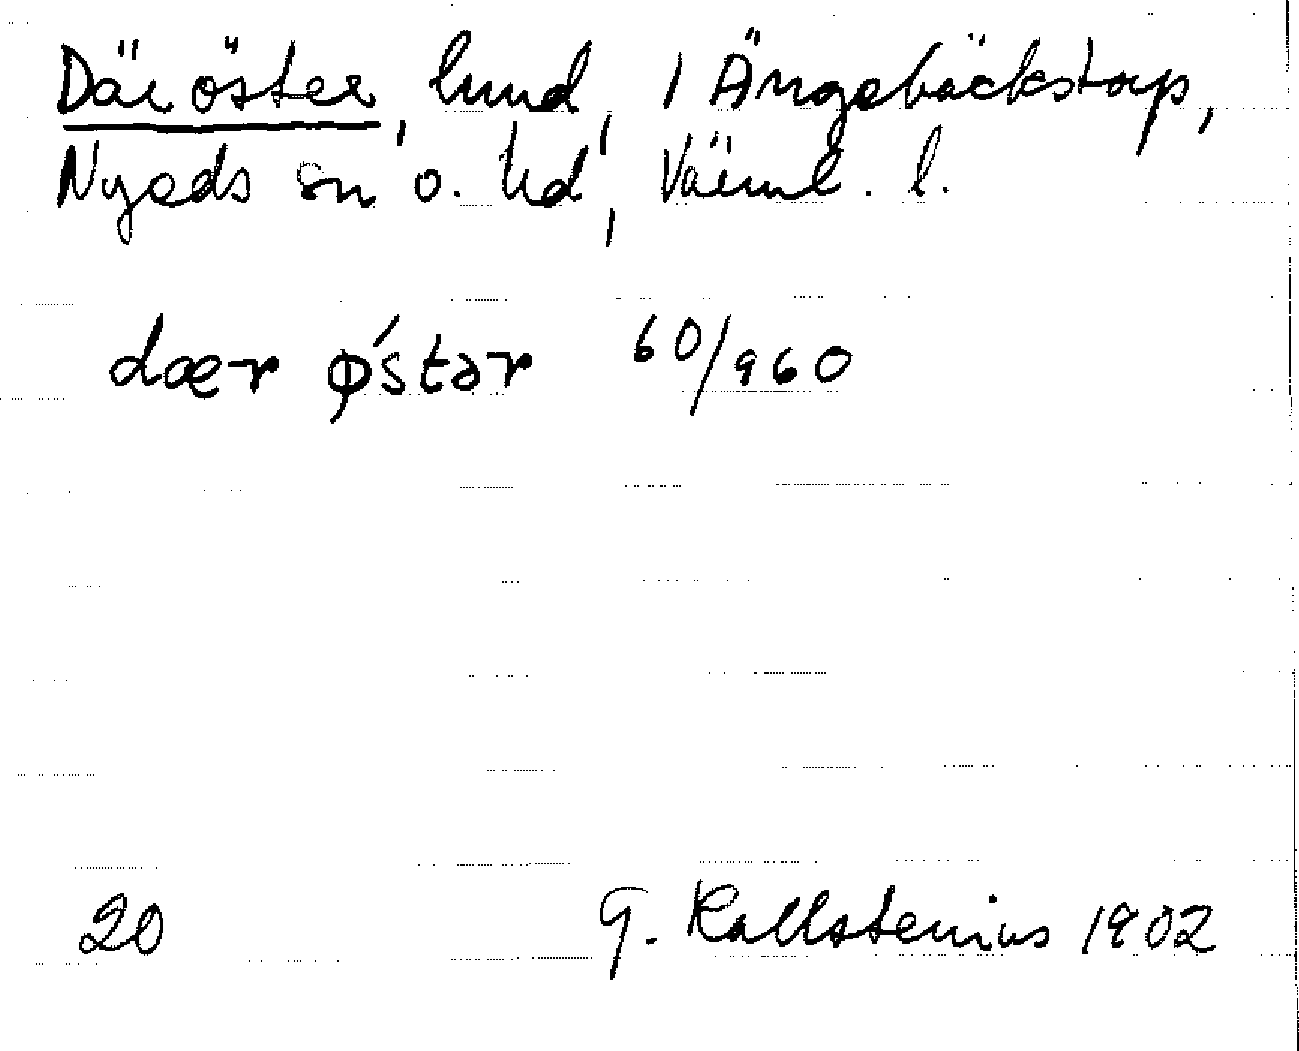 Där öster, lund, i Ängebäckstorp,
Nyeds sn o. hd, Värml. l.
dær ǿstər 60/960
20 G. Kallstenius 1902